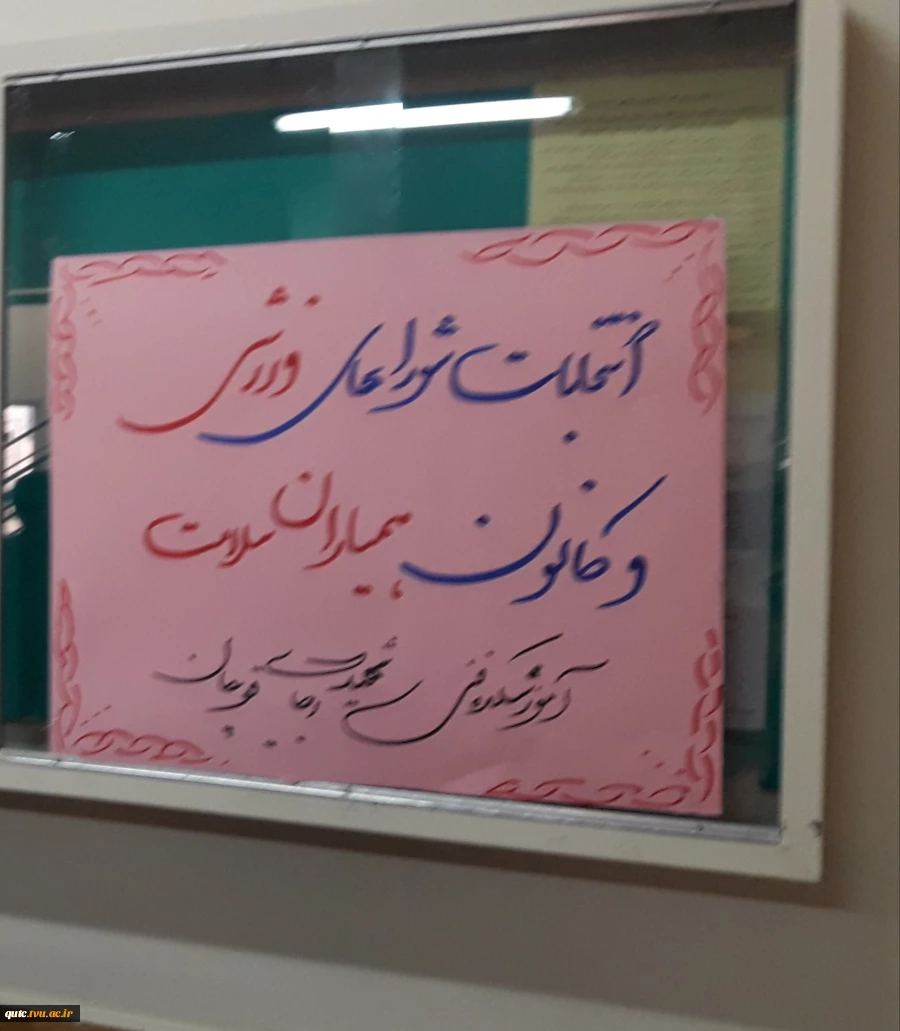 انتخابات شوراهای ورزشی
و کانون همیاران سلامت
آموزشکده فنی شهید رجایی قوچان
qutc.tvu.ac.ir